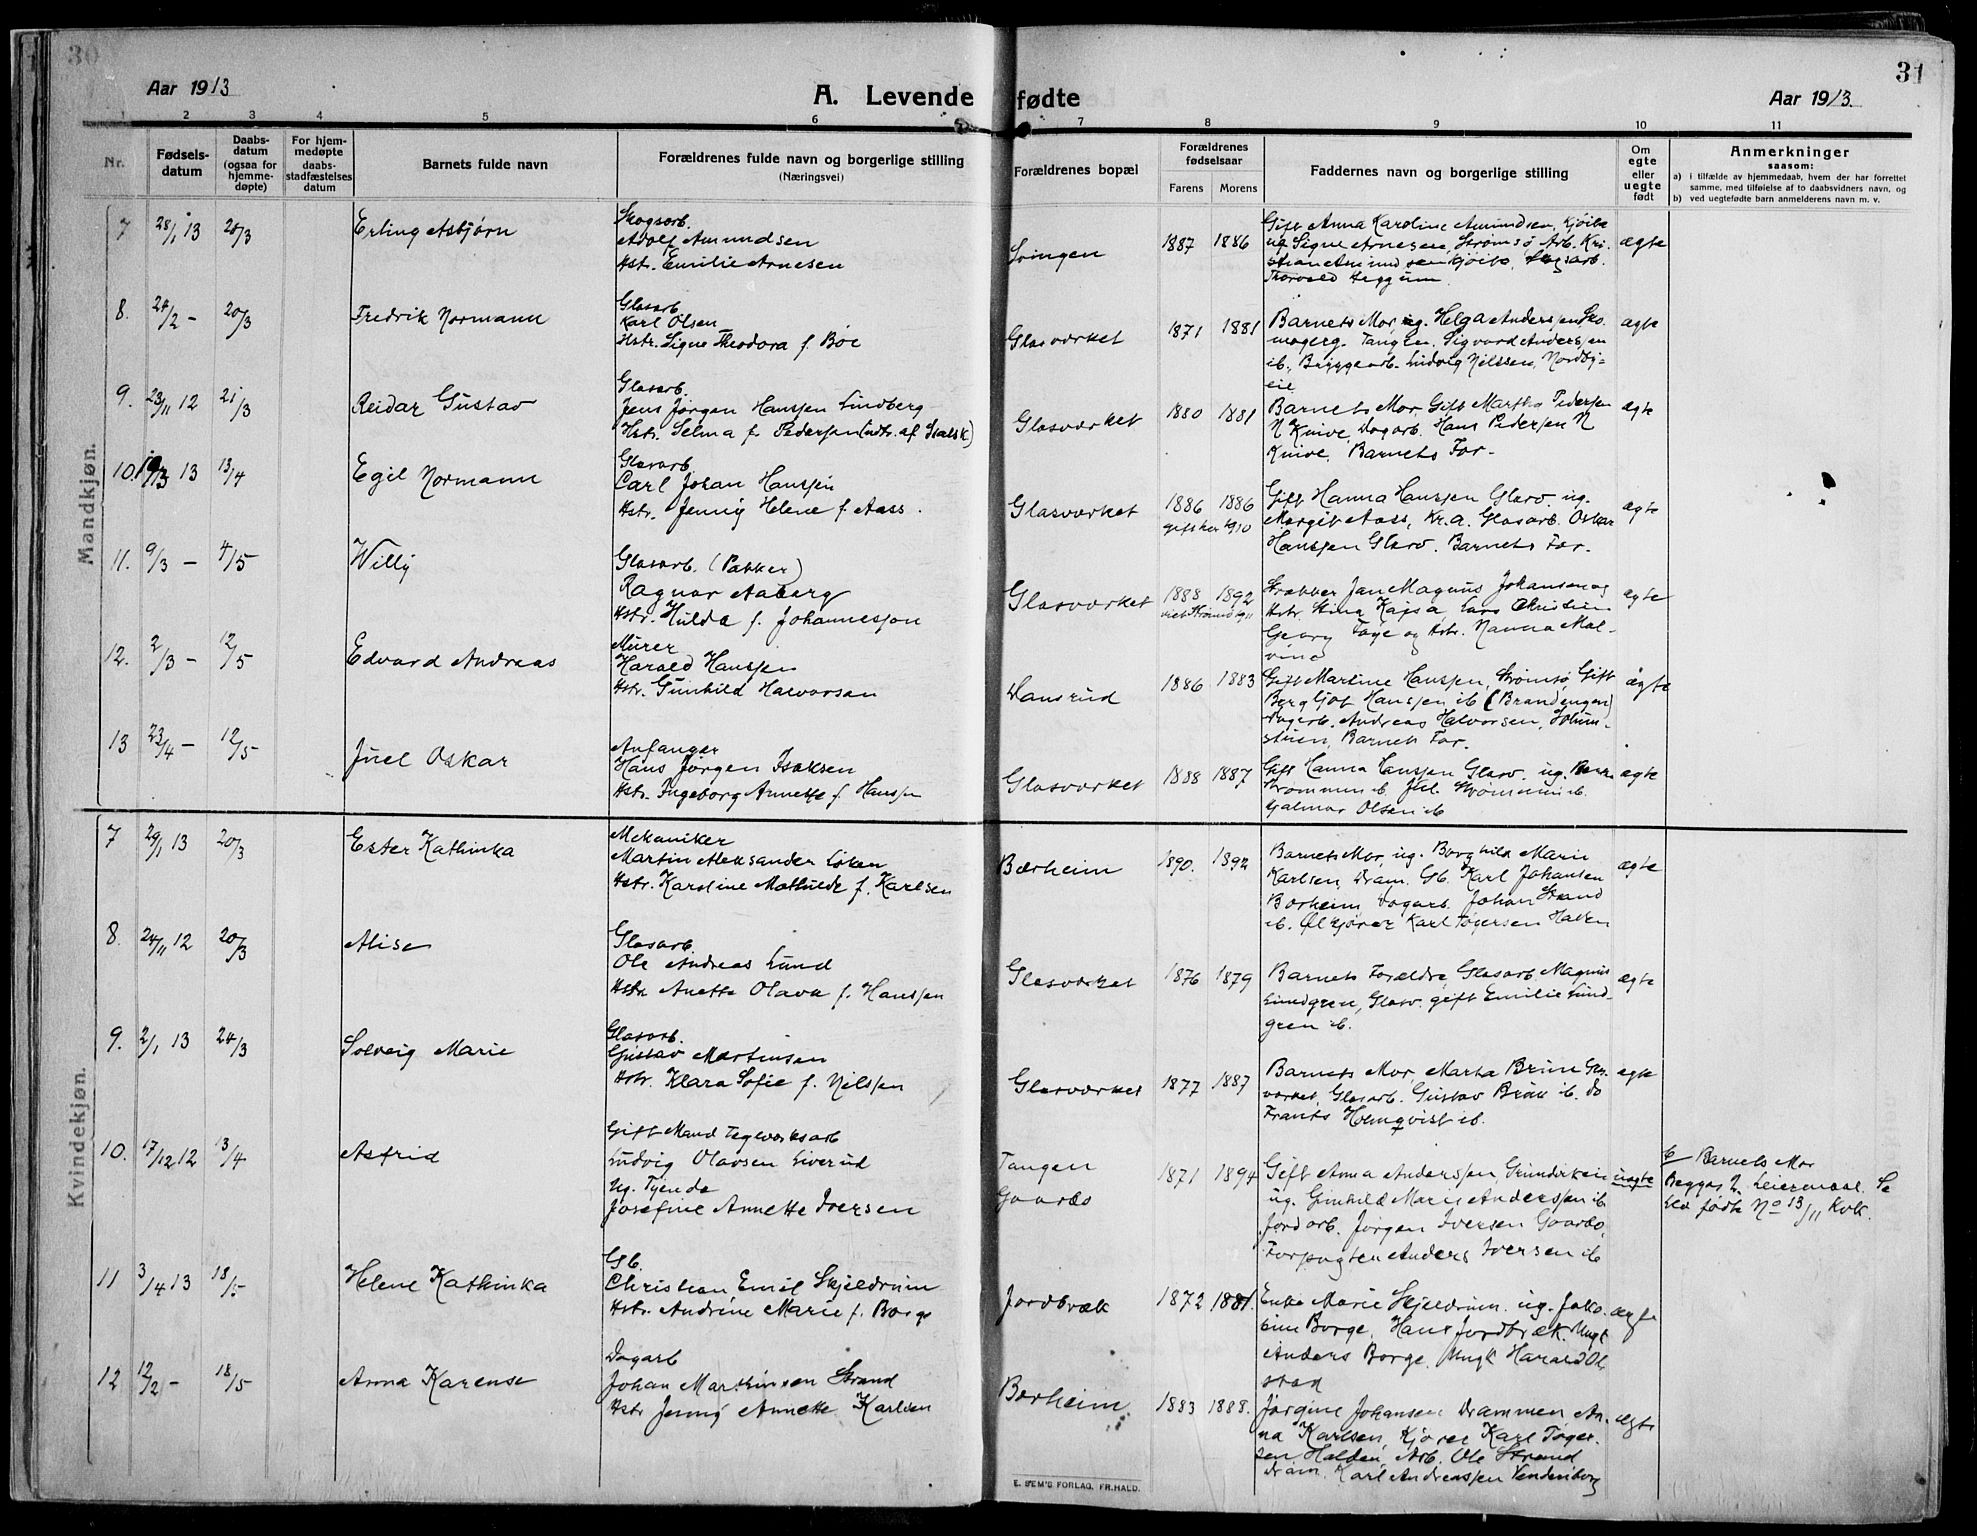 30
31
Aar 1913
A. Levende fødte
Aar 1913.
1 2 3 4 5 6 7 8 9 10 11
Nr.
Fødsels-
datum
Daabs-
datum
(ogsaa for
hjemme-
døpte)
For hjem-
medøpte
daabs-
stadfæstelses
datum
Barnets fulde navn
Forældrenes fulde navn og borgerlige stilling
(Næringsvei)
Forældrenes bopæl
Forældrenes
fødselsaar
Farens Morens
Faddernes navn og borgerlige stilling
Om
egte
eller
uegte
født
Anmerkninger
saasom:
a) i tilfælde av hjemmedaab, hvem der har forrettet
samme, med tilføielse af to daabsvidners navn, og
b) ved uegtefødte barn anmelderens navn m. v.
Mandkjøn.
7 28/1 13 20/3 Erling Asbjørn
Skogsarb.
Adolf Amundsen
Hstr. Emilie Arnesen
Svingen 1887 1886
Gift Anna Karoline Amundsen, Kjøibo
ug. Signe Arnesen Strømsø Arb. Kri-
stian Amundsen Kjøibo, Skogsarb.
Thorvald Heggum
ægte
8. 24/2 - 20/3 Fredrik Normann
Glasarb.
Karl Olsen
Hstr. Signe Theodora f. Bøe
Glasværket 1871 1881
Barnets Mor, ug. Helga Anderssen Sko-
magerg. Tangen, Sigvard Anderssen
ib., Bryggearb. Ludvig Nilssen, Nordby-
eie
ægte
9. 23/11 12 21/3 Reidar Gustav
Glasarb.
Jens Jørgen Hanssen Lindberg
Hstr. Selma f. Pederssen (udtr. af Statsk)
Glasværket 1880 1881
Barnets Mor, Gift Martha Pedersen
N Knive, Dagarb. Hans Pedersen N
Knive, Barnets Far.
ægte
10. 13 13/4 Egil Normann
Glasarb.
Carl Johan Hanssen
Hstr. Jenny Helene f. Aass.
Glasværket 1886 1886
gift her 1910
Gift Hanna Hanssen Glasv. ug.
Margit Aass, Kr.a. Glasarb. Oskar
Hanssen Glasv. Barnets Far.
ægte
11. 9/3 - 4/5 Willy
Glasarb. (Pakker)
Ragnar Aaberg
Hstr. Hulda f. Johannessen
Glasværket 1888 1892
Strækker Jan Magnus Johansen og
Hstr. Stina Kajsa Lars Christian
Georg Faye og Hstr. Nanna Mal-
vina
ægte
12. 2/3 - 12/5 Edvard Andreas
Murer
Harald Hanssen
Hstr. Gunhild Halvorsen
Dansrud 1886 1883
Gift Martine Hanssen, Strømsø, Gift
Bergljot Hanssen ib (Brandengen)
Dagarb. Andreas Halvorsen, Holm-
stuen, Barnets Far.
ægte
13 23/4 - 12/5 Juel Oskar
Anfanger
Hans Jørgen Isaksen
Hstr. Ingeborg Annette f. Hanssen
Glasværket 1888 1887
Gift Hanna Hanssen Glasv. ug.
Strømmen ib Jul. Strømmen ib.
Hjalmar Olsen ib
ægte
Kvindekjøn.
7 29/1 13 20/3 Ester Kathinka
Mekaniker
Martin Aleksander Løken
Hstr. Karoline Mathilde f. Karlsen
Bærheim 1890. 1892
Barnets Mor, ug. Borghild Marie
Karlsen, Dram. Gb. Karl Johansen
Borheim, Dagarb. Johan Strand
ib. Ølkjører Karl Togersen Haden
ægte
8. 24/11 12 20/3 Alise
Glasarb.
Ole Andreas Lund
Hstr Anette Olava f. Hanssen
Glasværket 1876 1879
Barnets Forældre, Glasarb. Magnus
Lundgren, Glasv. gift Emilie Lund-
gren ib.
ægte
9. 2/1 13 24/3 Solveig Marie
Glasarb.
Gustav Martinsen
Hstr. Klara Sofie f. Nilssen
Glasværket 1877 1887
Barnets Mor, Marta Brun Gla-
værket, Glasarb. Gustav Brun ib. do
Frants Holmqvist ib.
egte
10. 17/12 12 13/4 Astrid
Gift Mand Teglverksarb
Ludvig Olavsen Liverud
Ug. Tjende
Josefine Annette Iversen
Tangen
Gaarås
1871 1894
Gift Anna Anderssen, Grinderkein
ug. Gunhild Marie Anderssen ib.
Jordarb. Jørgen Iversen Gaarås,
Forpagter Anders Iversen ib
uægte
b/ Barnets Mor
Begges 2. Leiermaal. Se
lev fødte No 13/11 Kvk.
11 3/4 13 18/5 Helene Kathinka
Gb.
Christian Emil Skjeldrum
Hstr. Andrine Marie f. Borge
Jordbræk 1872 1881.
Enke Marie Skjeldrum. ug. Jako-
bine Borge, Hans Jordbræk. Ungk
Anders Borge, Ungk Harald Ol-
stad
ægte
12 12/2 - 18/5 Anna Karense
Dagarb
Johan Marthinsen Strand
Hstr Jenny Annette Karlsen
Borheim 1883 1888.
Jørgine Johansen Drammen, An-
na Karlsen, Kjører Karl Toger-
sen Halden, Arb. Ole Strand
Dram. Karl Andreassen
ægte
E. SEM'S FORLAG, FR.HALD.